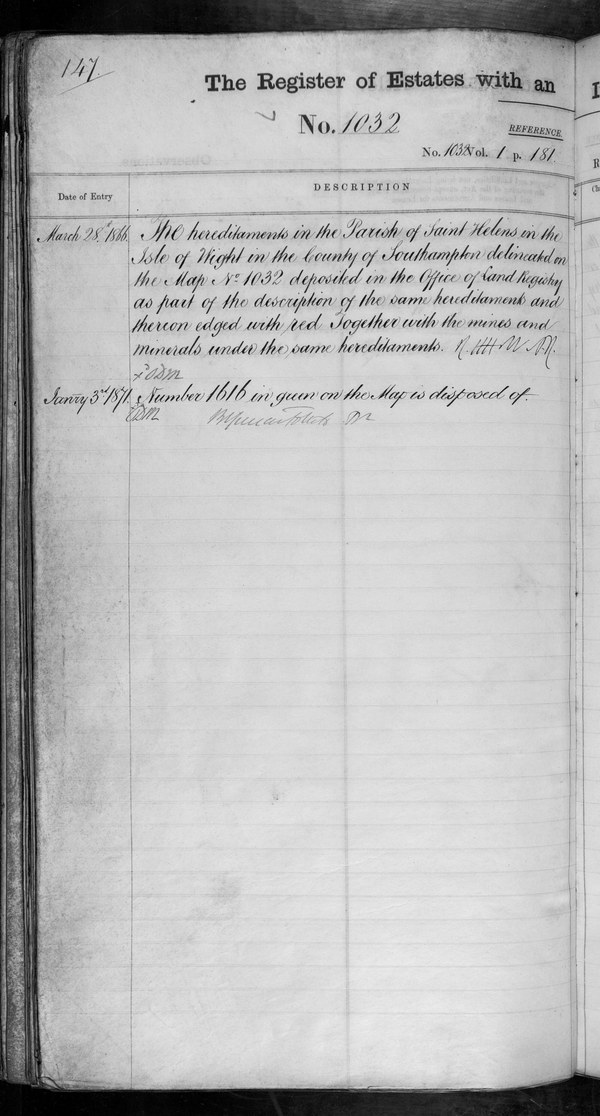 147
The Register of Estates with an
No. 1032
REFERENCE.
No. 1032 Vol. 1 p. 181
Date of Entry
DESCRIPTION
March 28th 1866.
The hereditaments in the Parish of Saint Helens in the
Isle of Wight in the County of Southampton delineated on
the Map No 1032 deposited in the Office of Land Registry
as part of the description of the same hereditaments and
thereon edged with red Together with the mines and
minerals under the same hereditaments.
Janry 3rd 1871. Number 1616 in green on the Map is disposed of.